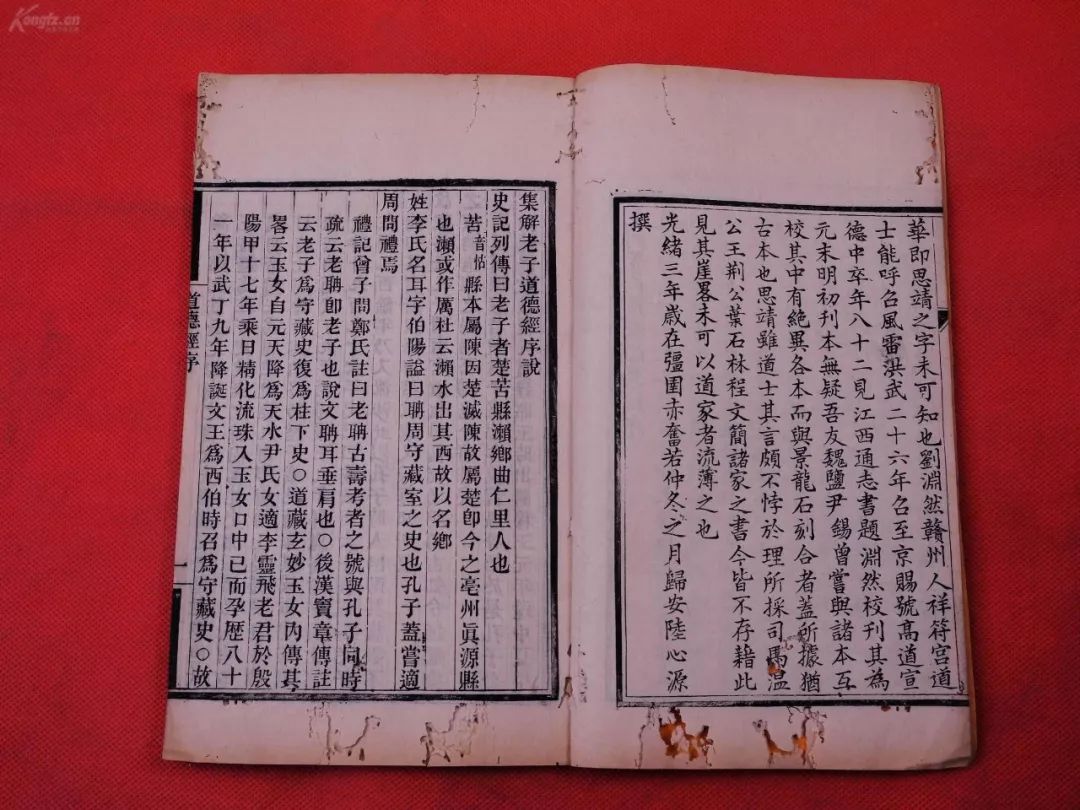 Kongfz.cn
華即思靖之字未可知也劉淵然贛州人祥符宮道
士能呼召風雷洪武二十六年召至京賜號高道宣
德中卒年八十二見江西通志書題淵然校刊其為
元末明初刊本無疑吾友魏鹽尹錫曾嘗與諸本互
校其中有絕異各本而與景龍石刻合者蓋所據猶
古本也思靖雖道士其言頗不悖於理所採司馬溫
公王荆公葉石林程文簡諸家之書今皆不存藉此
見其崖畧未可以道家者流薄之也
光緒三年歲在彊圉赤奮若仲冬之月歸安陸心源
撰
集解老子道德經序說
史記列傳曰老子者楚苦縣瀨鄉曲仁里人也
苦音怙縣本屬陳因楚滅陳故屬楚卽今之亳州眞源縣
也瀨或作厲杜云瀨水出其西故以名鄉
姓李氏名耳字伯陽謚曰聃周守藏室之史也孔子蓋嘗適
周問禮焉
禮記曾子問鄭氏註曰老聃古壽考者之號與孔子同時
疏云老聃卽老子也說文聃耳垂肩也○後漢竇章傳註
云老子爲守藏史復爲柱下史○道藏玄妙玉女內傳其
畧云玉女自元天降爲天水尹氏女適李靈飛老君於殷
陽甲十七年乘日精化流珠入玉女口中已而孕歷八十
一年以武丁九年降誕文王爲西伯時召爲守藏史○故
道德經序
一